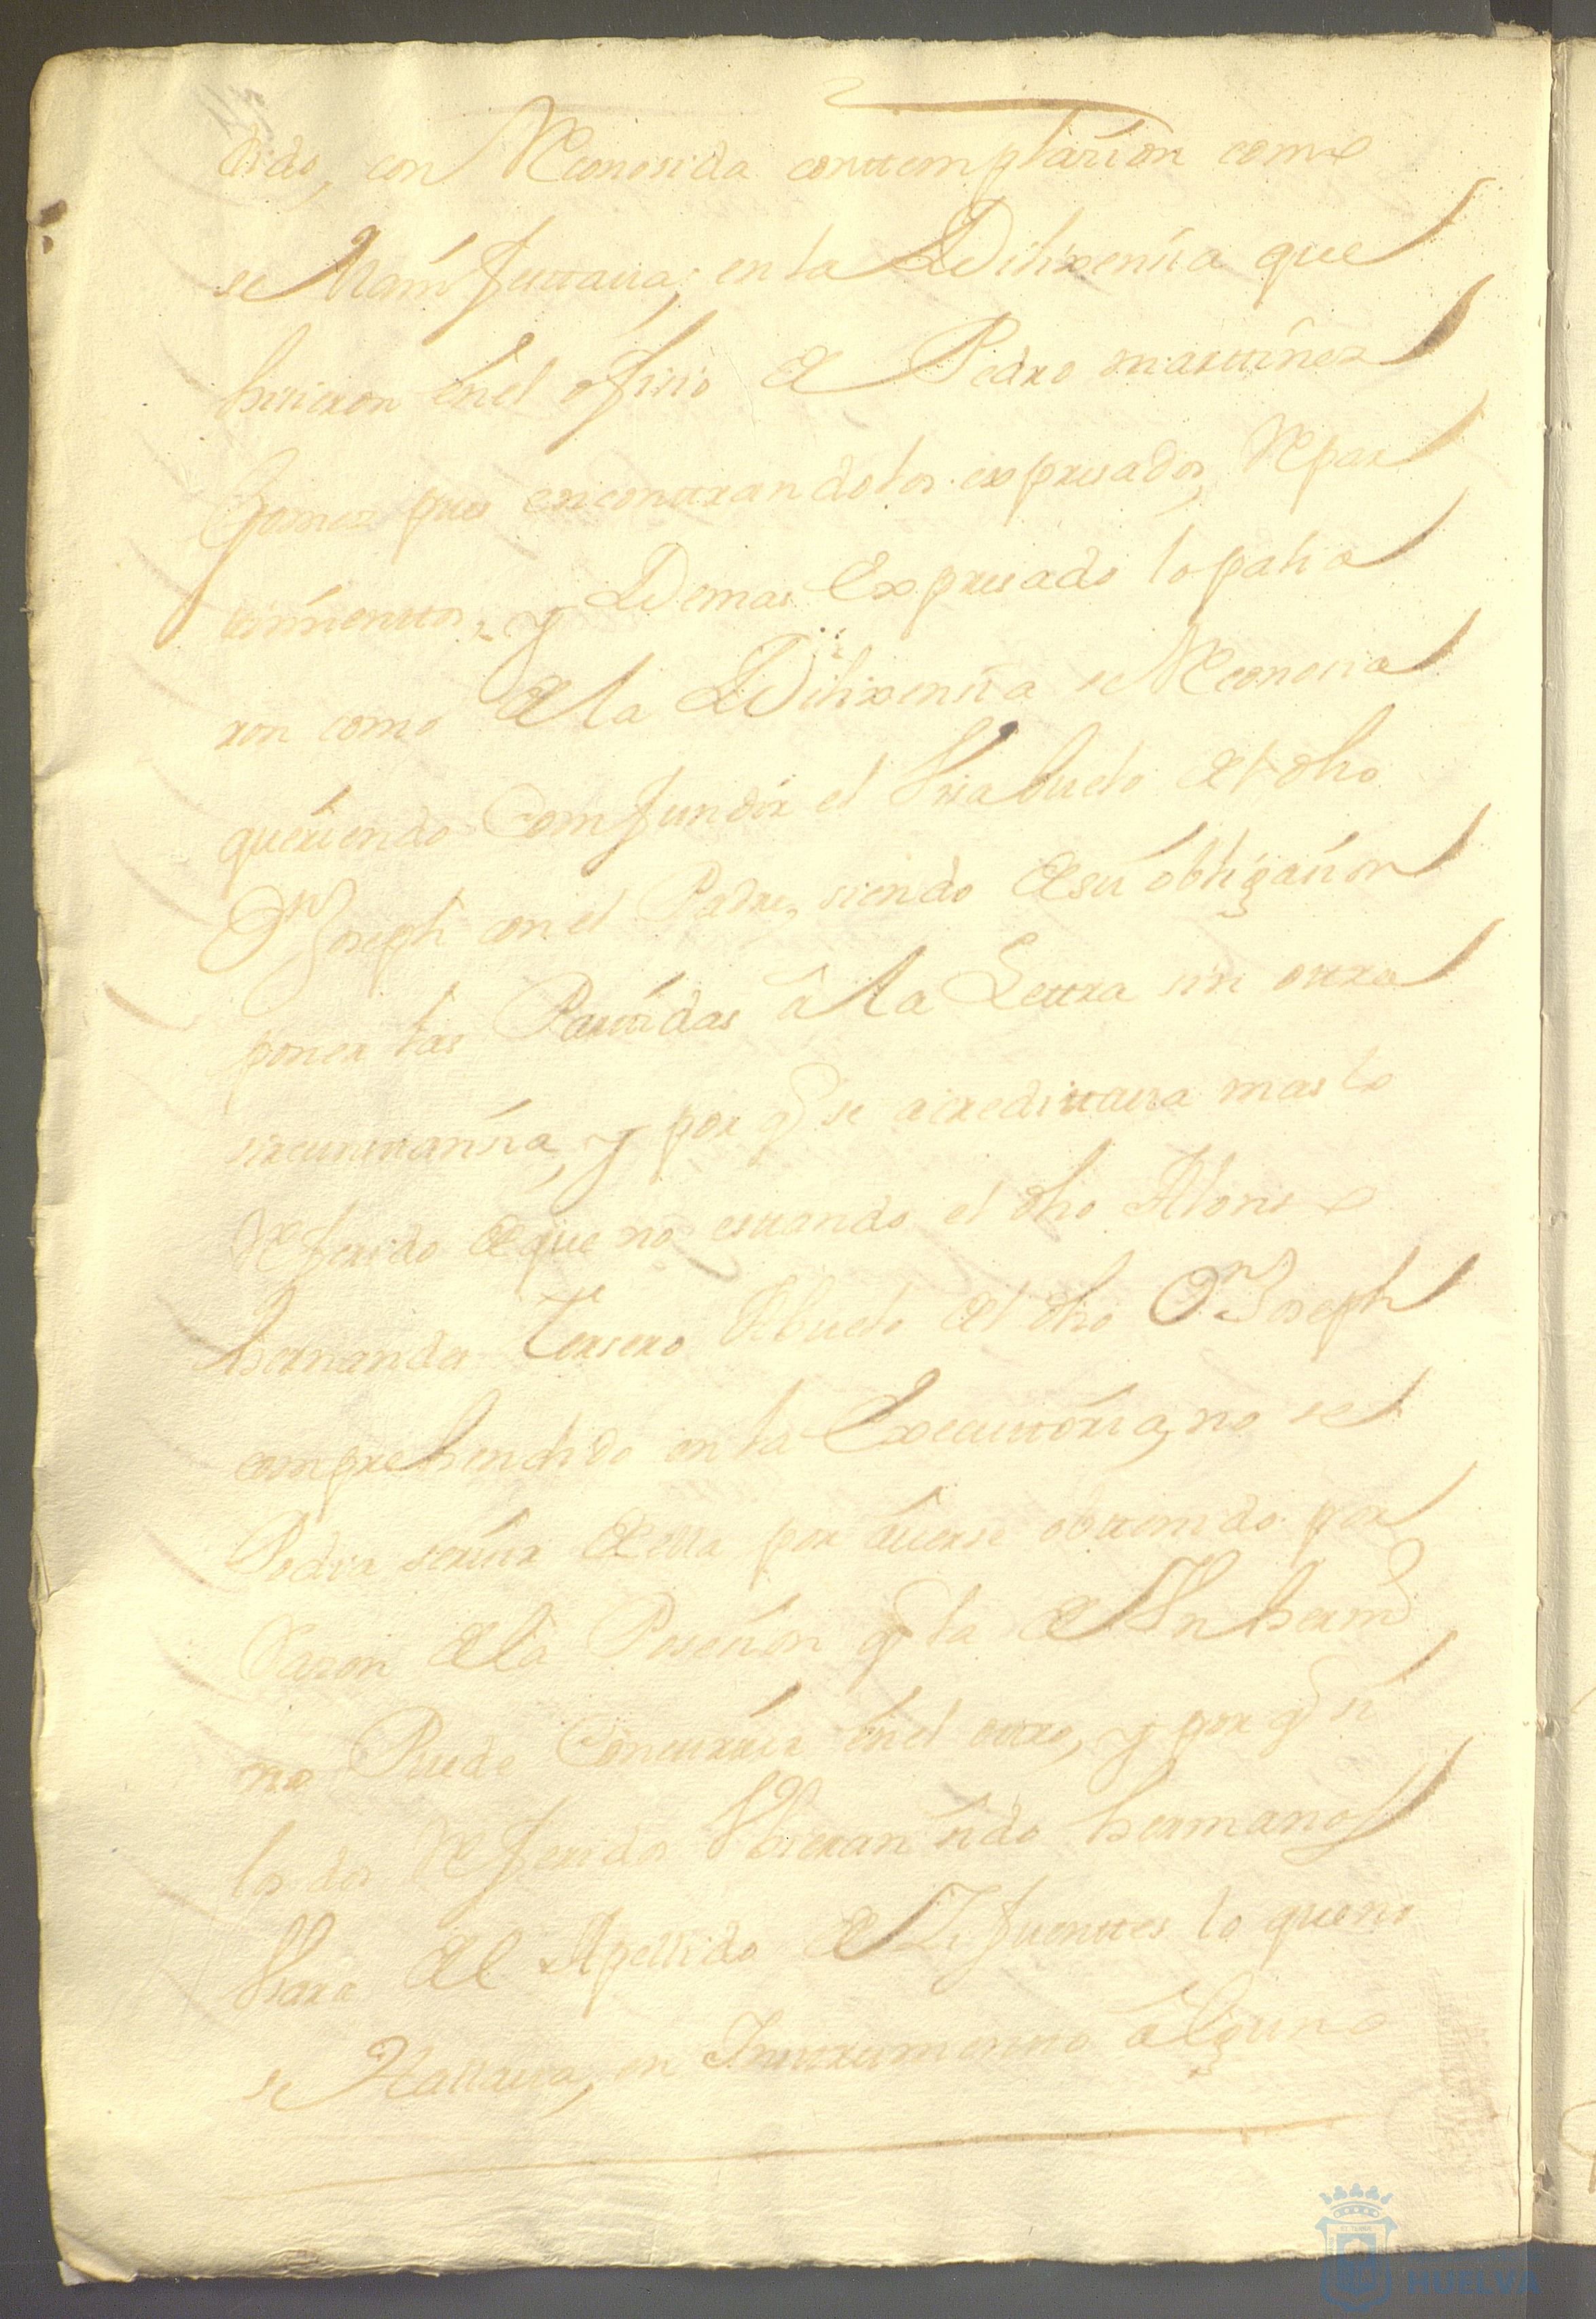 dido, con Reconosida conttemplasion como
se Manifesttaua; en la Dilixensia que
hisieron en el ofisio de Pedro marttinez
Gomez pues encontrandolos expresados, Repar
timienttos, y Demas Expresado lo palia
ron como de la Dilixensia se Reconosia
queriendo Comfundir el Visabuelo del dho
Dn Joseph con el Padre, siendo de su obligasion
poner las Parttidas â la Letra sin otra
sircunsttansia, y por q se acredittaua mas lo
Referido de que no esttando el dho Alonso
hernandez Tersero Abuelo del dho Dn Joseph
comprehendido en la Executtoria, no se
Podia seruir de ella por auerse obttenido por
Razon de la Posesion q la de Un herm.o
no Puede Concurrir en el otro, y por q si
los dos Referidos Vbieran sido hermanos
Vsara del Apellido de Sifuenttes lo que no
se Hallaua, en Insttrumentto âlguno
HUELVA